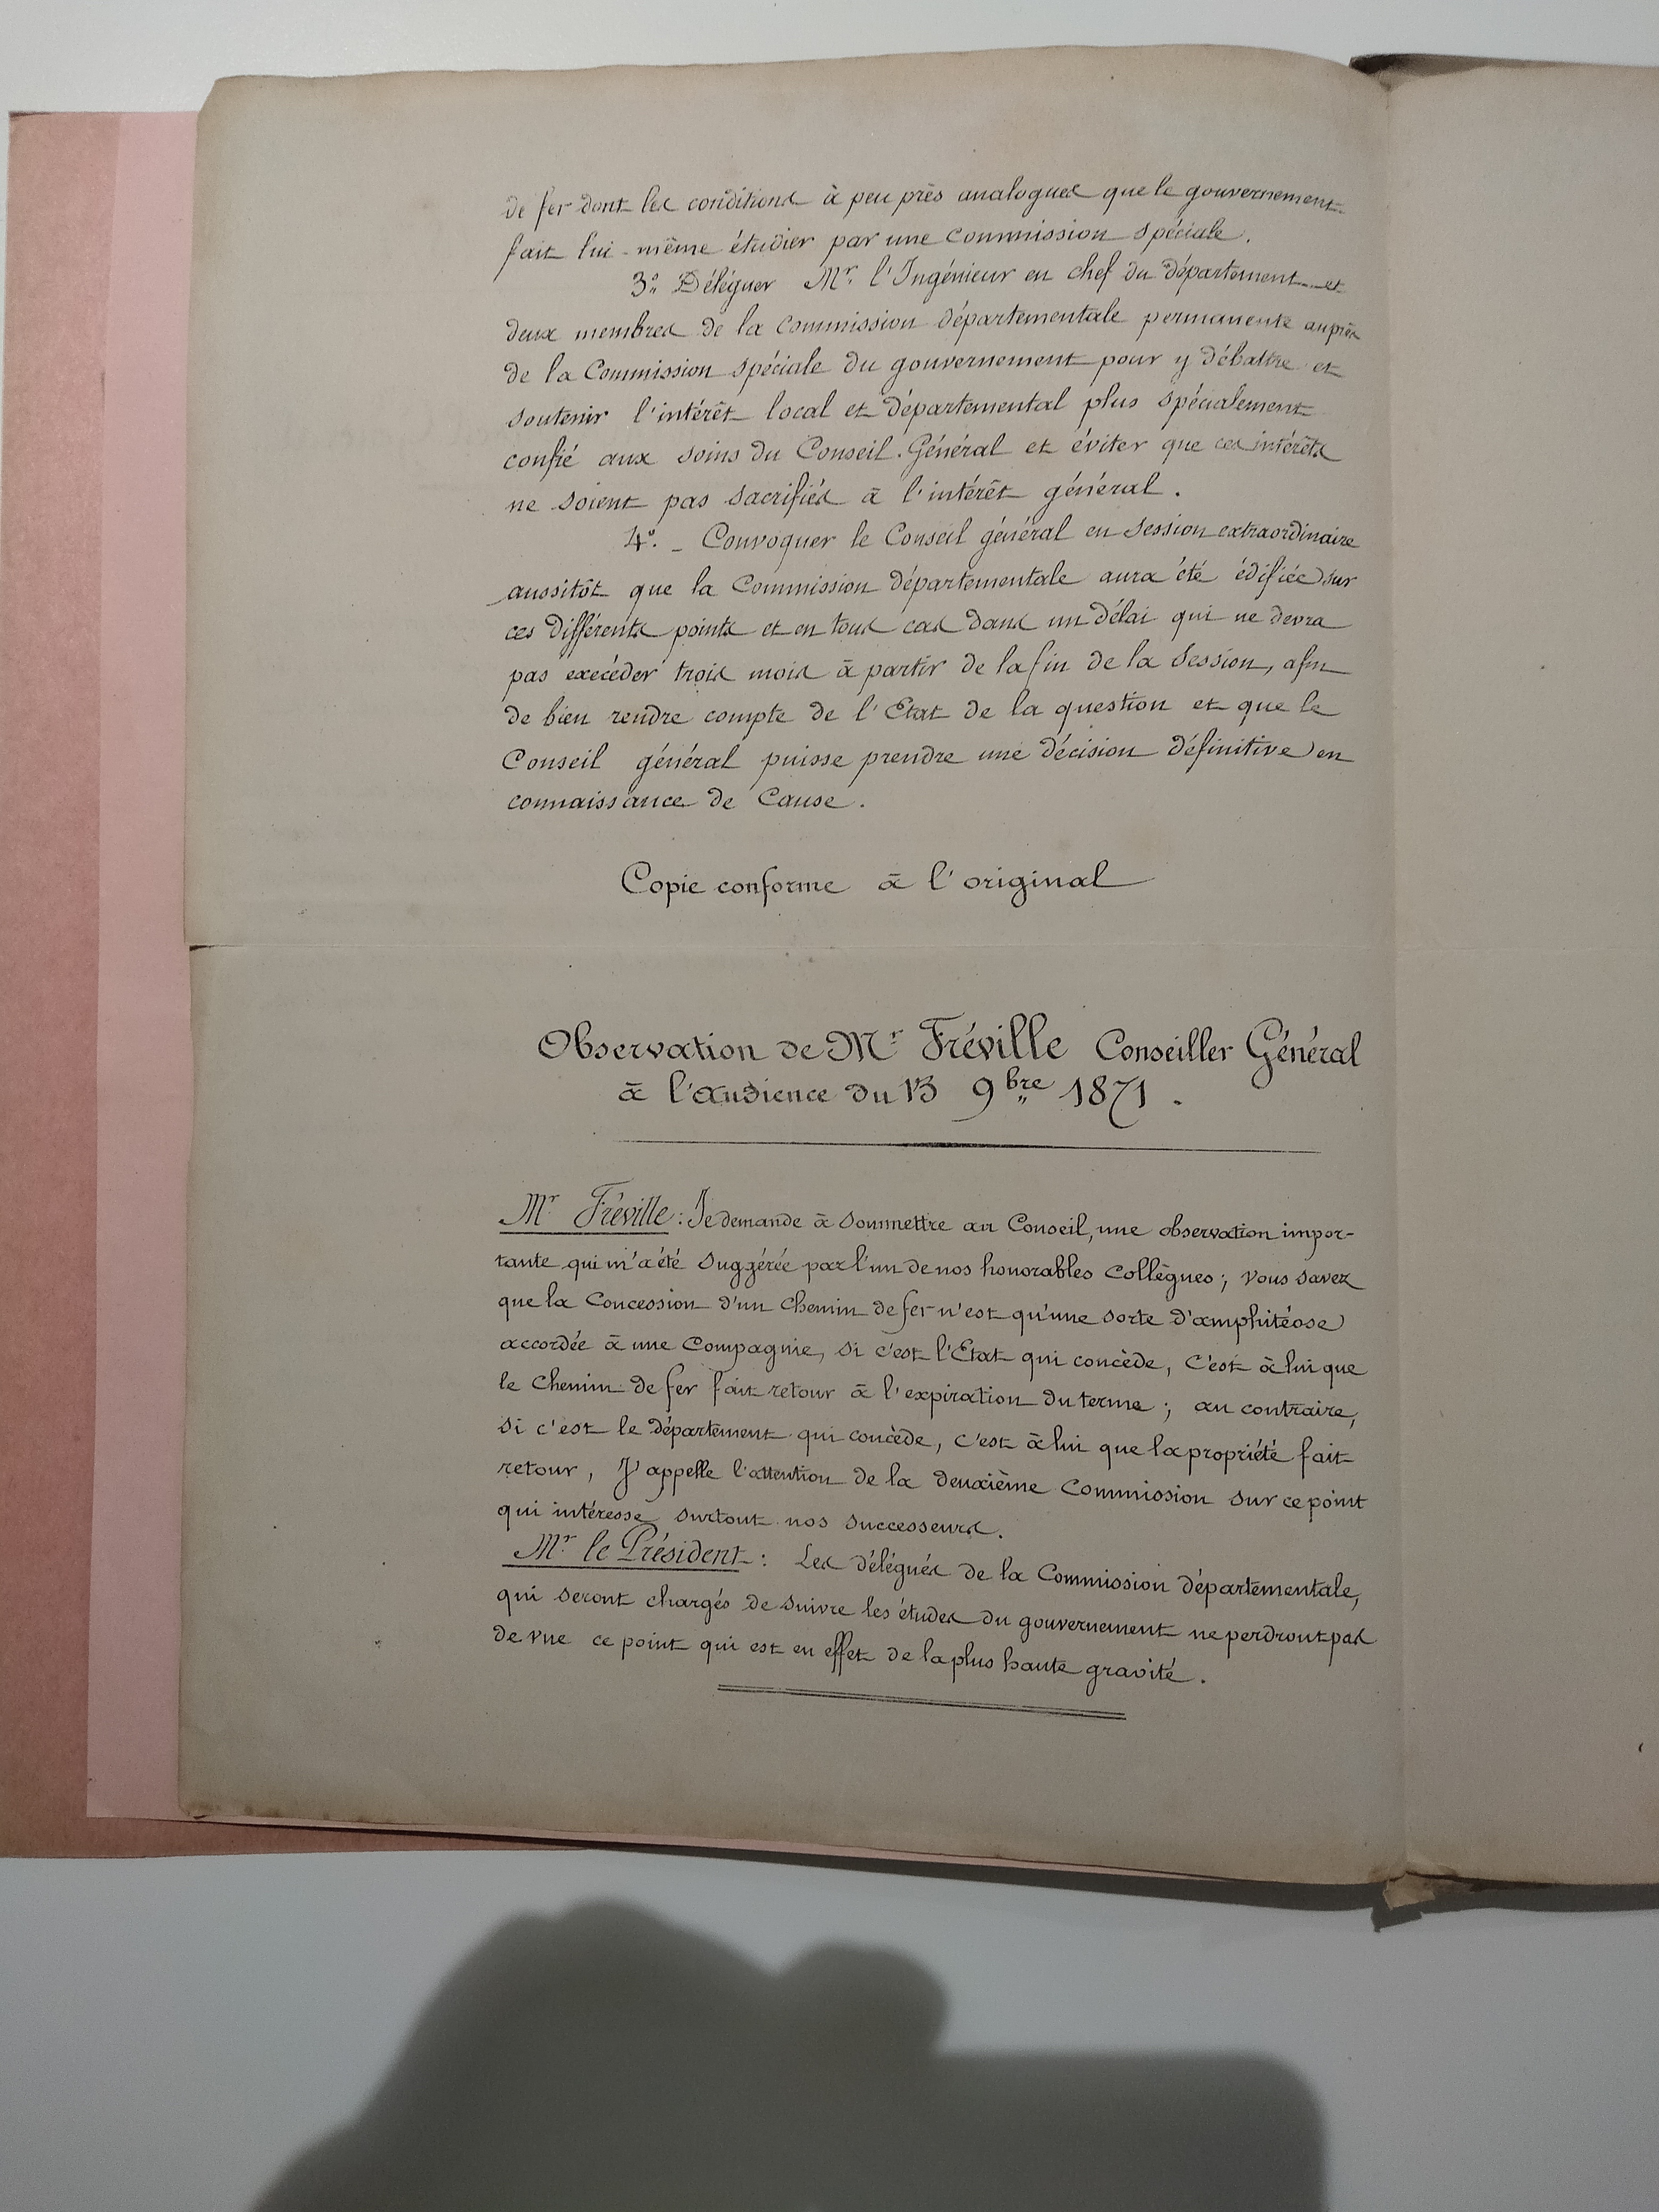 de fer dont les conditions à peu près analogues que le gouvernement
fait lui-même étudier par une Commission spéciale.
3° Déléguer Mr. l'Ingénieur en chef du département et
deux membres de la Commission départementale permanente auprès
de la Commission spéciale du gouvernement pour y débattre et
soutenir l'intérêt local et départemental plus spécialement
confié aux soins du Conseil Général et éviter que ces intérêts
ne soient pas sacrifiés à l'intérêt général.
4°. _ Convoquer le Conseil général en session extraordinaire
aussitôt que la Commission départementale aura été édifiée sur
ces différents points et en tous cas dans un délai qui ne devra
pas exécéder trois mois à partir de la fin de la session, afin
de bien rendre compte de l'Etat de la question et que le
Conseil général puisse prendre une décision définitive en
connaissance de Cause.
Copie conforme à l'original
Observation de Mr Fréville Conseiller Général
à l'audience du 13 9bre 1871.
Mr Fréville : Je demande à soumettre au Conseil, une observation impor-
tante qui m'a été suggérée par l'un de nos honorables Collègues ; vous savez
que la Concession d'un Chemin de fer n'est qu'une sorte d'amphitéose
accordée à une Compagnie, si c'est l'Etat qui concède, c'est à lui que
le Chemin de fer fait retour à l'expiration du terme ; au contraire,
si c'est le département qui concède, c'est à lui que la propriété fait
retour, J'appelle l'attention de la deuxième Commission sur ce point
qui intéresse surtout nos successeurs.
Mr le Président : Les délégués de la Commission départementale,
qui seront chargés de suivre les études du gouvernement ne perdront pas
de vue ce point qui est en effet de la plus haute gravité.